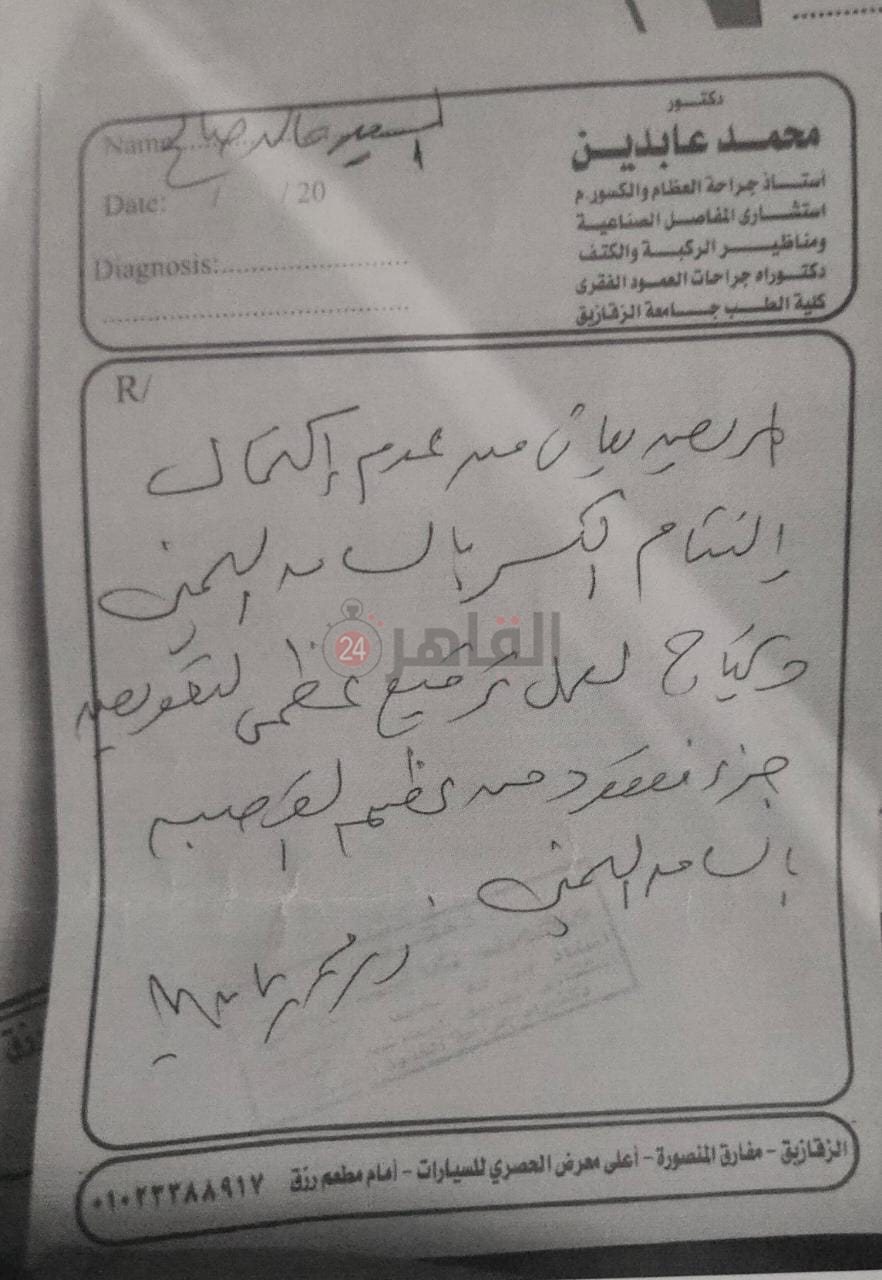 دكتــور
محمــد عابديــن
أستــاذ جراحة العظام والكسور.م
استشــارى المفاصل الصناعيــة
ومناظيــر الركبــة والكتف
دكتــوراه جراحات العمــود الفقرى
كلية الطــب جــامعة الزقازيق
Name السعيد خالد صالح
Date: / / 20
Diagnosis:
R/
المريض يعانى من عدم إكتمال
إلتئام الكسر بالساعد اليمنى
ويحتاج لعمل ترقيع عظمى لتعويض
جزء مفقود من عظم القصبه
بالساعد اليمنى
القاهرة 24
الزقازيق - مفارق المنصورة - أعلى معرض الحصري للسيارات - أمام مطعم رزق ٠١٠٢٣٣٨٨٩١٧